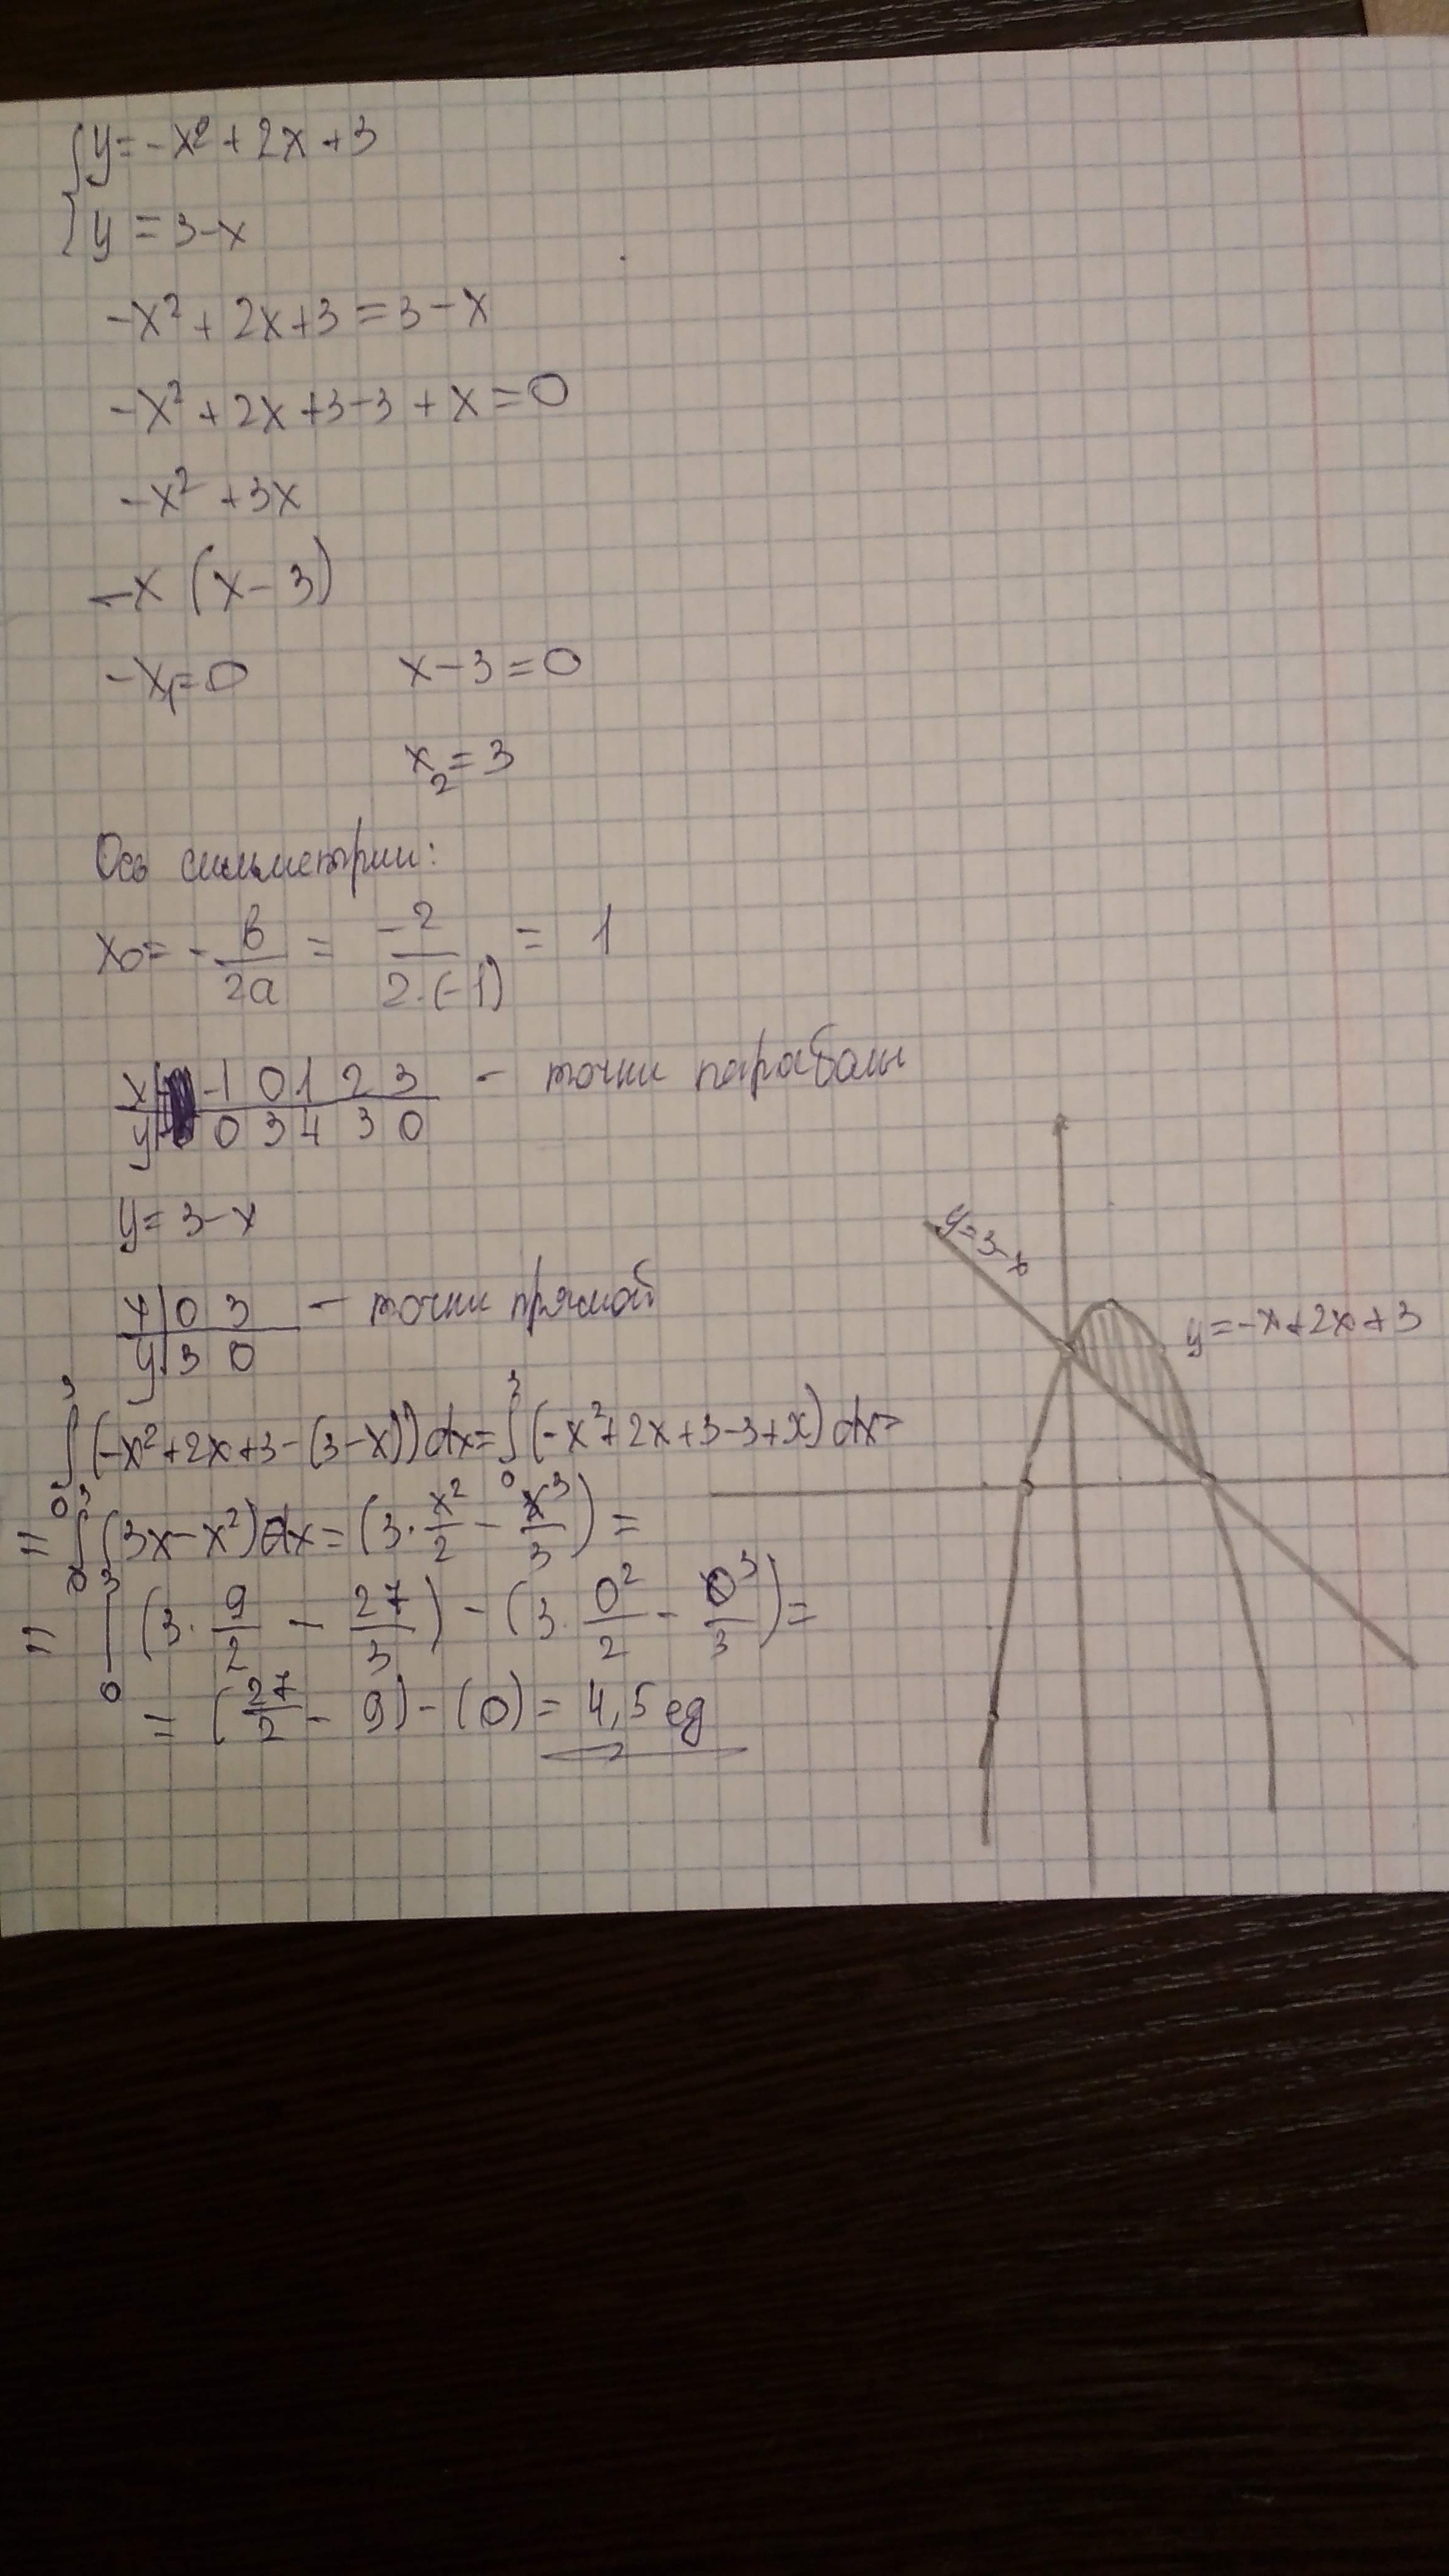 {y = -x² + 2x + 3
y = 3-x
-x² + 2x + 3 = 3 - x
-x² + 2x + 3 - 3 + x = 0
-x² + 3x
-x (x - 3)
-x₁ = 0 x - 3 = 0
x₂ = 3
Ось симметрии:
x₀ = - в/2a = -2/2·(-1) = 1
x | -1 0 1 2 3 - точки параболы
y | 0 3 4 3 0
y = 3 - x
x | 0 3 - точки прямой
y | 3 0
y = 3-x
y = -x + 2x + 3
∫₀³ (-x² + 2x + 3 - (3-x)) dx = ∫₀³ (-x² + 2x + 3 - 3 + x) dx =
= ∫₀³ (3x - x²) dx = (3 · x²/2 - x³/3) =
= |₀³ (3 · 9/2 - 27/3) - (3 · 0²/2 - 0³/3) =
= (27/2 - 9) - (0) = 4,5 ед